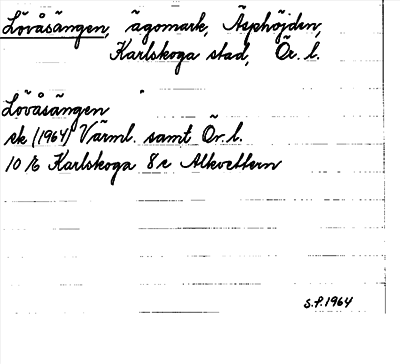 Lövåsängen, ägomark, Äsphöjden,
Karlskoga stad, Ör. l.
Lövåsängen
ek (1964) Värml. samt Ör. l.
10 % Karlskoga 8 c Alkvettern
S.F. 1964